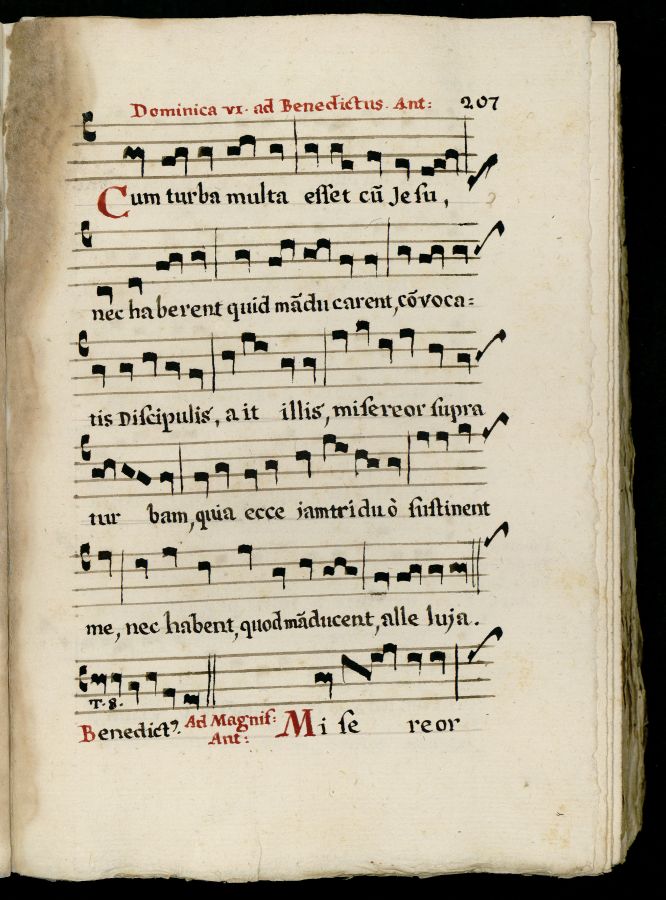 Dominica VI. ad Benedictus. Ant: 207
Cum turba multa esset cũ Jesu,
nec haberent quid mãducarent, cõvoca=
tis Discipulis, ait illis, misereor supra
turbam, quia ecce jam triduò sustinent
me, nec habent, quod mãducent, alleluja.
T. 8.
Benedictꝰ. Ad Magnif: Misereor
Ant: